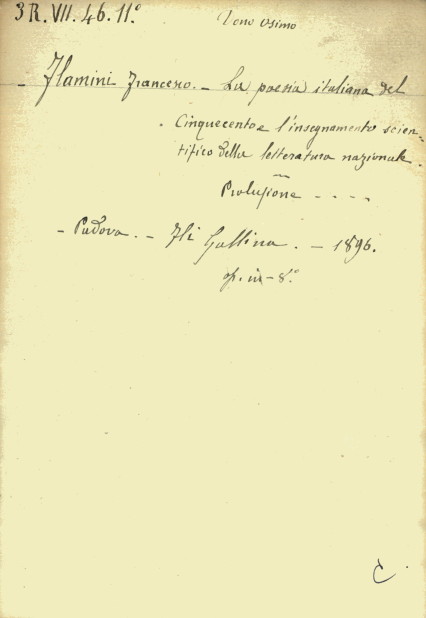 3 R. VII. 46. 11.°
Dono Osimo
Flamini Francesco. - La poesia italiana del
Cinquecento e l'insegnamento scien-
tifico della letteratura nazionale.
Prolusione - - - -
- Padova. - Fli Gallina. - 1896.
op. in - 8.°
C.